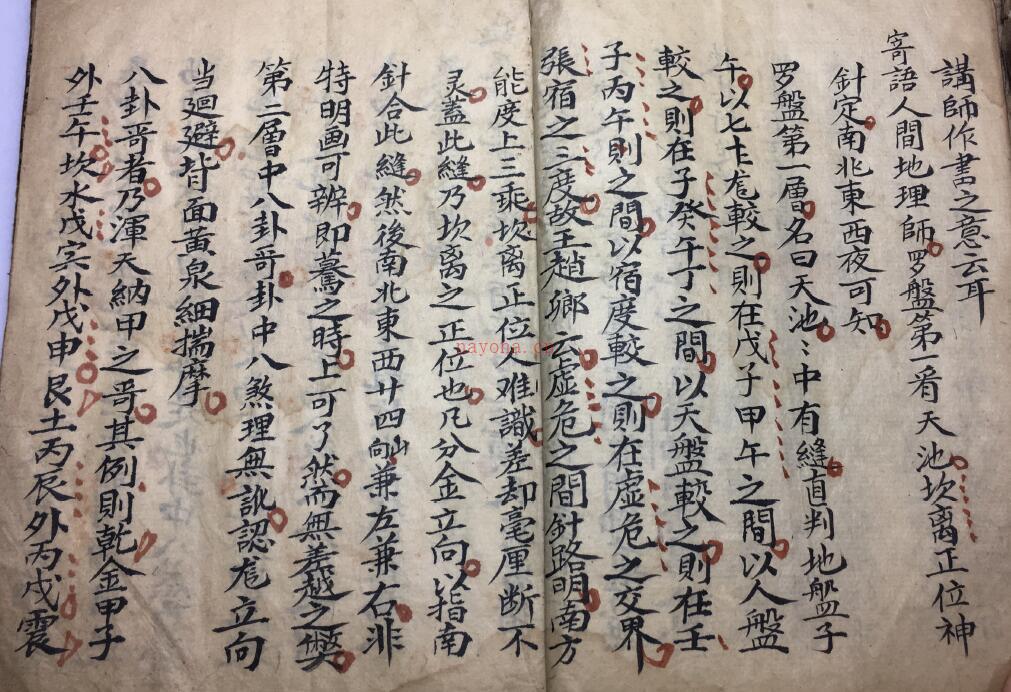 講師作書之意云耳
寄語人間地理師罗盤第一看天池坎离正位神
針定南北東西夜可知
罗盤第一層名曰天池〻中有縫直判地盤子
午以七十龙較之則在戊子甲午之間以人盤
較之則在子癸午丁之間以天盤較之則在壬
子丙午則之間以宿度較之則在虛危之交界
張宿之三度故王趙鄉云虛危之間針路明南方
張宿上三乘坎离正位人难識差却毫厘断不
灵盖此縫乃坎离之正位也凡分金立向以指南
針合此縫然後南北東西廿四山向兼左兼右非
特明画可辨即驀之時上可了然而無差越之弊
第二層中八卦哥卦中八煞理無訛認龙立向
当廻避背面黃泉細揣摩
八卦哥者乃渾天納甲之哥其例則乾金甲子
外壬午坎水戊寅外戊申艮土丙辰外丙戌震
nayona.cn